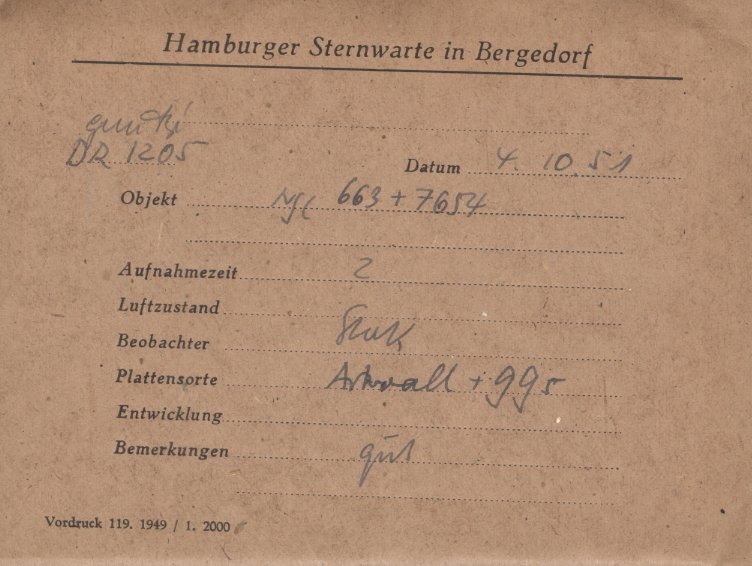 Hamburger Sternwarte in Bergedorf
DR 1205
Datum 4. 10. 51
Objekt NGC 663 + 7654
Aufnahmezeit 2
Luftzustand
Beobachter
Plattensorte + 99
Entwicklung
Bemerkungen gut
Vordruck 119. 1949 / 1. 2000